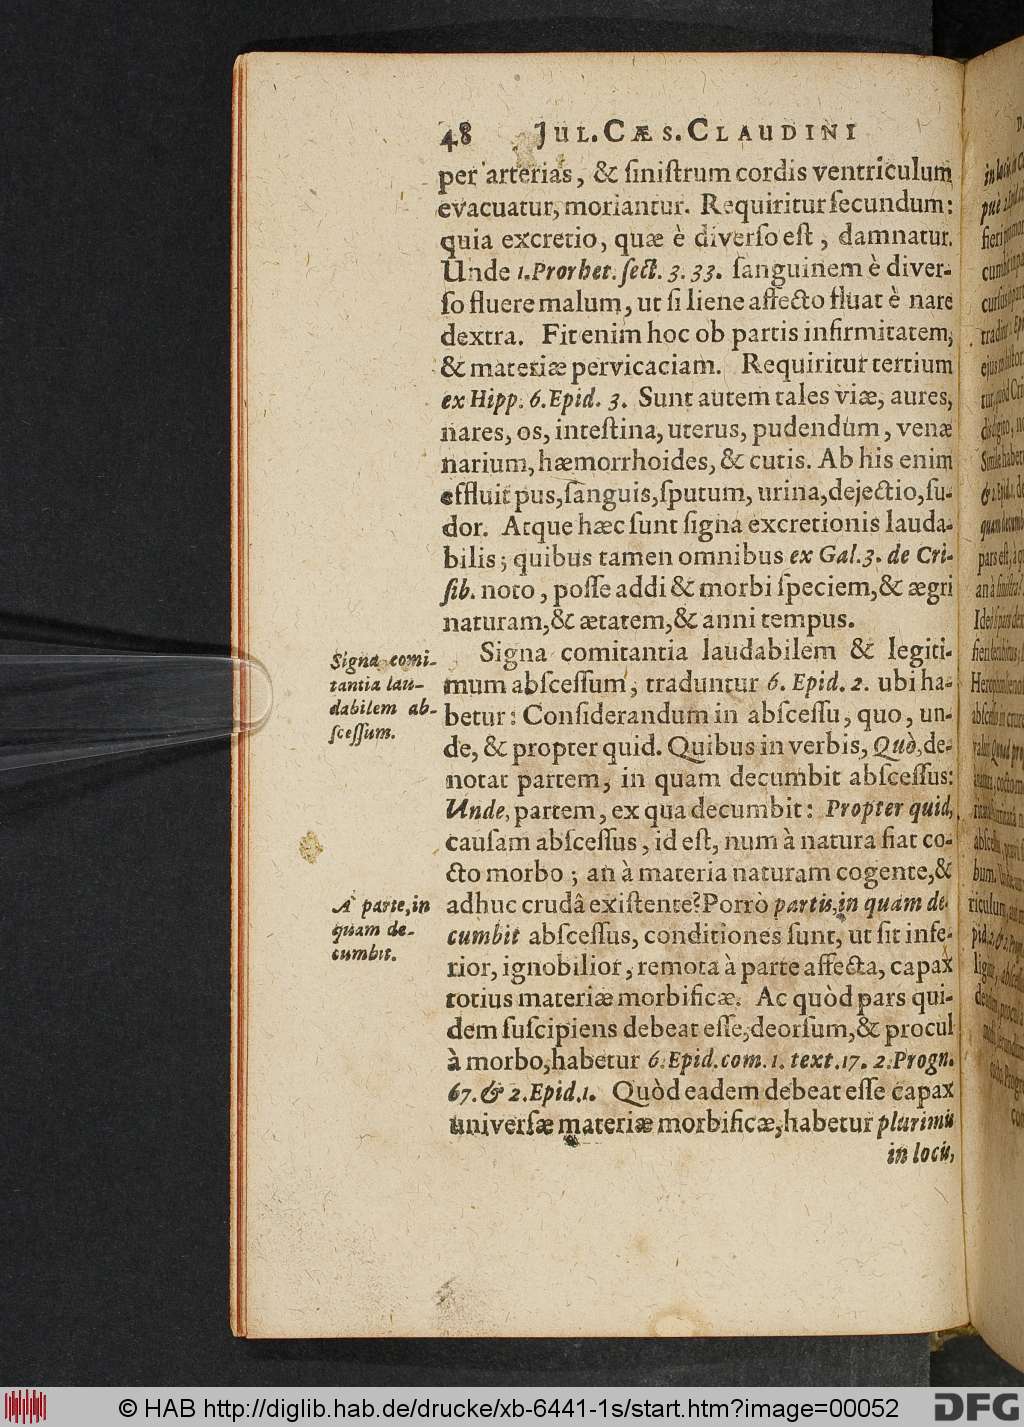 48 JUL. CÆS. CLAUDINI
per arterias, & siniſtrum cordis ventriculum
evacuatur, moriantur. Requiritur ſecundum:
quia excretio, quæ è diverſo eſt, damnatur.
Unde 1. Prorhet. ſect. 3. 33. ſanguinem è diver-
ſo fluere malum, ut ſi liene affecto fluat è nare
dextra. Fit enim hoc ob partis infirmitatem,
& materiæ pervicaciam. Requiritur tertium
ex Hipp. 6. Epid. 3. Sunt autem tales viæ, aures,
nares, os, inteſtina, uterus, pudendum, venæ
narium, hæmorrhoides, & cutis. Ab his enim
effluit pus, ſanguis, ſputum, urina, dejectio, ſu-
dor. Atque hæc ſunt ſigna excretionis lauda-
bilis; quibus tamen omnibus ex Gal. 3. de Cri-
ſib. noto, poſſe addi & morbi ſpeciem, & ægri
naturam, & ætatem, & anni tempus.
Signa comitantia laudabilem & legiti-
mum abſceſſum, traduntur 6. Epid. 2. ubi ha-
betur: Conſiderandum in abſceſſu, quo, un-
de, & propter quid. Quibus in verbis, Quò, de-
notat partem, in quam decumbit abſceſſus:
Unde, partem, ex qua decumbit: Propter quid,
cauſam abſceſſus, id eſt, num à natura fiat co-
cto morbo; an à materia naturam cogente, &
adhuc crudâ exiſtente? Porrò partis, in quam de-
cumbit abſceſſus, conditiones ſunt, ut ſit infe-
rior, ignobilior, remota à parte affecta, capax
totius materiæ morbificæ. Ac quòd pars qui-
dem ſuſcipiens debeat eſſe, deorſum, & procul
à morbo, habetur 6. Epid. com. 1. text. 17. 2. Progn.
67. & 2. Epid. 1. Quòd eadem debeat eſſe capax
univerſæ materiæ morbificæ, habetur plurimis
in locis,
Signa comi-
tantia lau-
dabilem ab-
ſceſſum.
A parte, in
quam de-
cumbit.
© HAB http://diglib.hab.de/drucke/xb-6441-1s/start.htm?image=00052
DFG